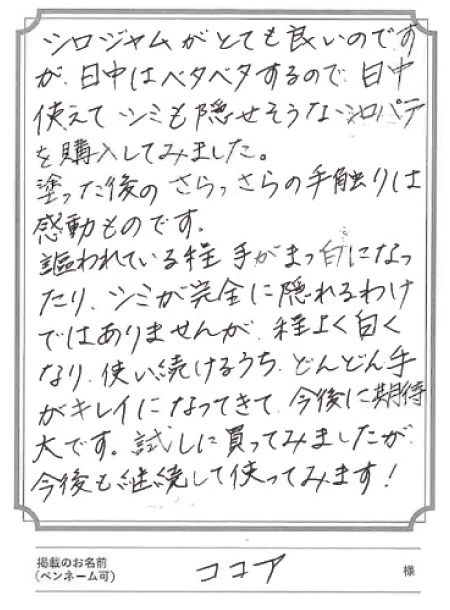 シロジャムがとても良いのです
が、日中はベタベタするので、日中
使えてシミも隠せそうなシロパテ
を購入してみました。
塗った後のさらっさらの手触りは
感動ものです。
謳われている程 手がまっ白になっ
たり、シミが完全に隠れるわけ
ではありませんが、程よく白く
なり、使い続けるうち、どんどん手
がキレイになってきて、今後に期待
大です。試しに買ってみましたが
今後も継続して使ってみます!
掲載のお名前
(ペンネーム可)
ココア 様